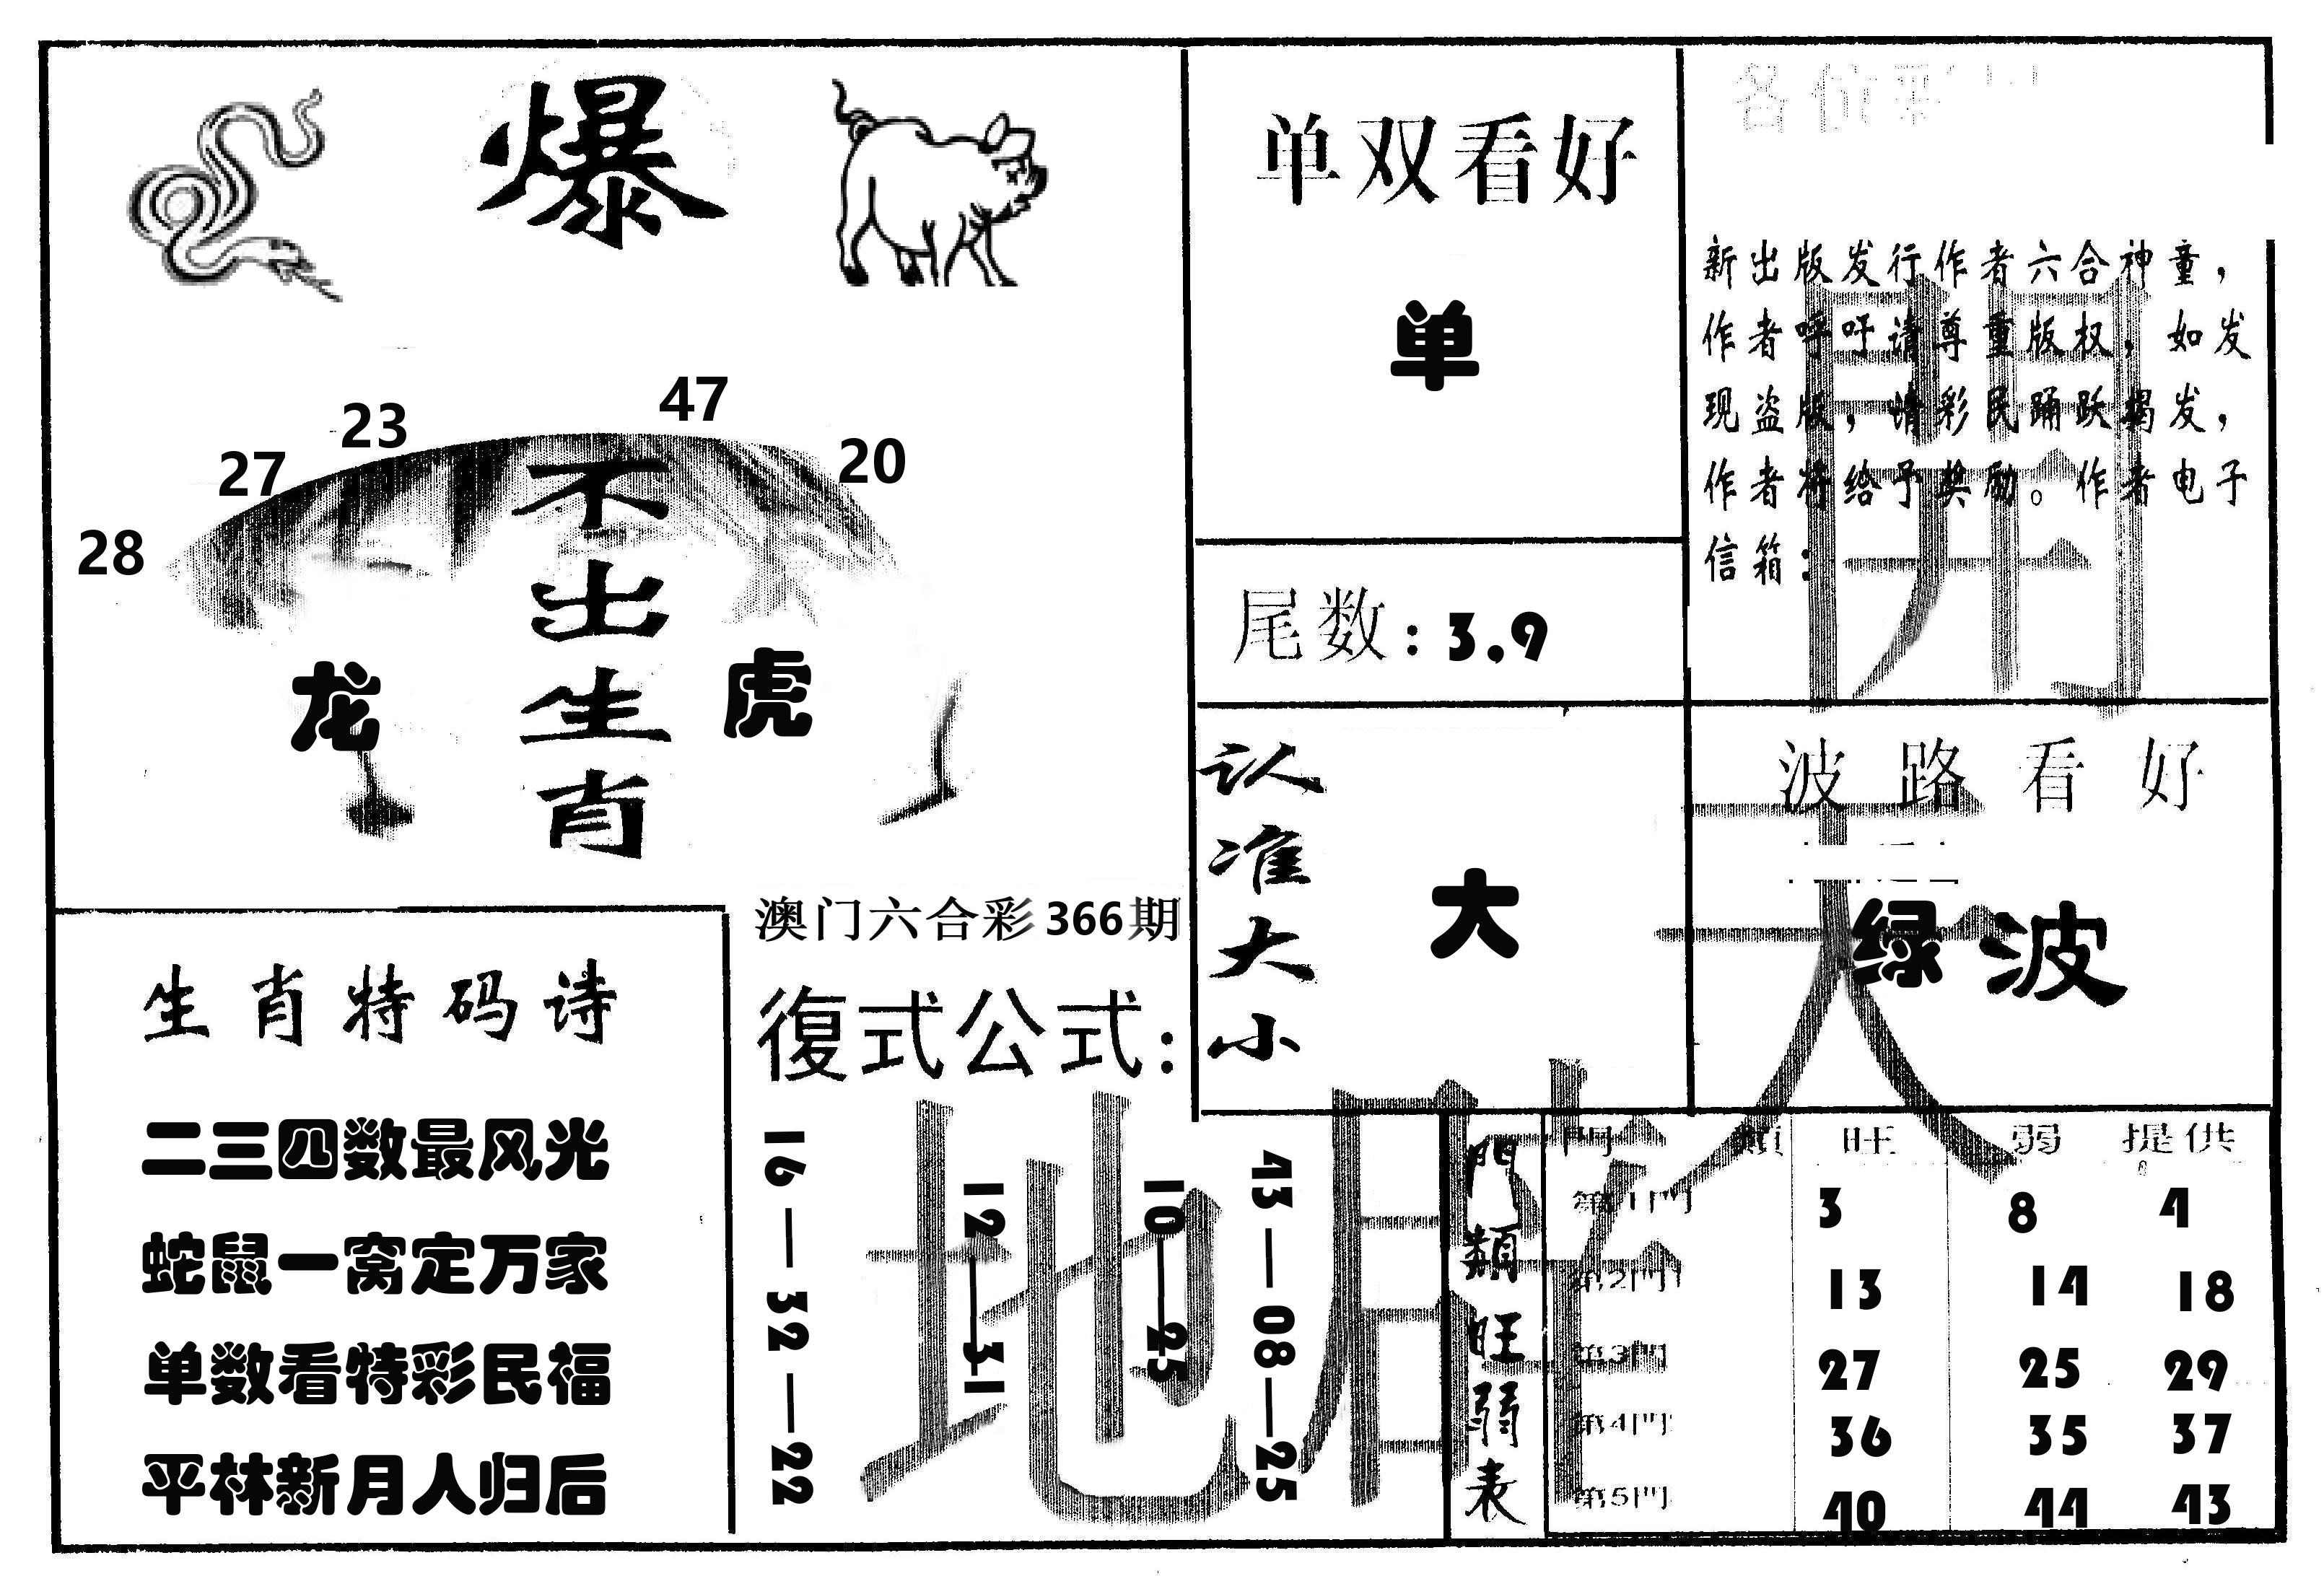 爆
28 27 23 47 20
不出生肖
龙
虎
单双看好
单
尾数：3.9
新出版发行作者六合神童，
作者呼吁请尊重版权，如发
现盗版，请彩民踊跃揭发，
作者将给予奖励。作者电子
信箱：
认准大小
大
波路看好
绿波
生肖特码诗
二三四数最风光
蛇鼠一窝定万家
单数看特彩民福
平林新月人归后
澳门六合彩366期
復式公式：
16—32—22
12—31
10—25
43—08—25
門類旺弱表
門 類 旺 弱 提供
第1門 3 8 4
第2門 13 14 18
第3門 27 25 29
第4門 36 35 37
第5門 40 44 43